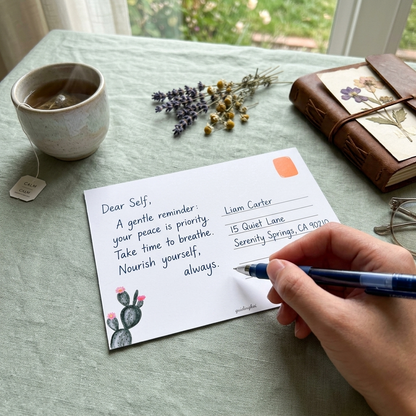 Dear Self,
A gentle reminder:
your peace is priority.
Take time to breathe.
Nourish yourself,
always.
Liam Carter
15 Quiet Lane
Serenity Springs, CA 90210